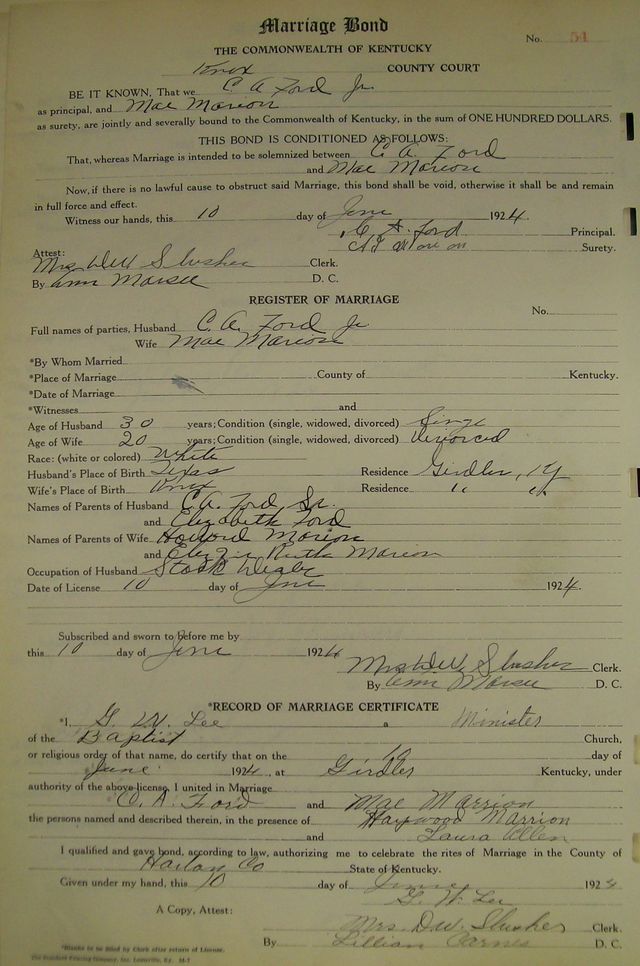 Marriage Bond
No. 54
THE COMMONWEALTH OF KENTUCKY
Knox COUNTY COURT
BE IT KNOWN, That we C A Ford Jr.
as principal, and Mae Marion
as surety, are jointly and severally bound to the Commonwealth of Kentucky, in the sum of ONE HUNDRED DOLLARS.
THIS BOND IS CONDITIONED AS FOLLOWS:
That, whereas Marriage is intended to be solemnized between C. A. Ford
and Mae Marion
Now, if there is no lawful cause to obstruct said Marriage, this bond shall be void, otherwise it shall be and remain
in full force and effect.
Witness our hands, this 10 day of June 1924.
C. A. Ford Principal.
Marion Surety.
Attest:
Mrs D W Slusher Clerk.
By D. C.
REGISTER OF MARRIAGE
No.
Full names of parties, Husband C. A. Ford Jr
Wife Mae Marion
*By Whom Married
*Place of Marriage County of Kentucky.
*Date of Marriage
*Witnesses and
Age of Husband 30 years; Condition (single, widowed, divorced) Single
Age of Wife 20 years; Condition (single, widowed, divorced) Divorced
Race: (white or colored) White
Husband's Place of Birth Texas Residence Girdler, Ky
Wife's Place of Birth Knox Residence " "
Names of Parents of Husband C.A. Ford Sr.
and Elizabeth Ford
Names of Parents of Wife Marion
and Ruth Marion
Occupation of Husband Stock Dealer
Date of License 10 day of June 1924.
Subscribed and sworn to before me by
this 10 day of June 1924
Mrs D W Slusher Clerk.
By D. C.
*RECORD OF MARRIAGE CERTIFICATE
*I, G. W. Lee a Minister
of the Baptist Church,
or religious order of that name, do certify that on the 10 day of
June 1924, at Girdler Kentucky, under
authority of the above license, I united in Marriage
C. A. Ford and Mae Marrion
the persons named and described therein, in the presence of Haywood Marrion
and Laura Allen
I qualified and gave bond, according to law, authorizing me to celebrate the rites of Marriage in the County of
Harlan Co State of Kentucky.
Given under my hand, this 10 day of June 1924
G. W. Lee
A Copy, Attest:
Mrs. D.W. Slusher Clerk.
By Lillian D. C.
*Blanks to be filled by Clerk after return of License.
The Standard Printing Company, Inc. Louisville, Ky.